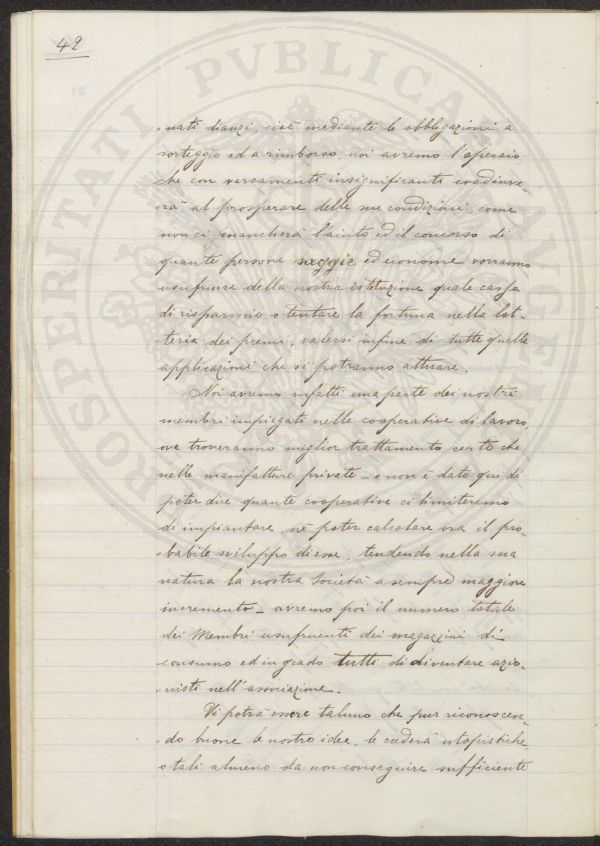 42
PROSPERITATI PVBLICAE AVGENDAE
-nati dianzi, cioè mediante le obbligazioni a
sorteggio ed a rimborso, noi avremo l'operaio
che con versamenti insignificanti coadiuve-
rà al prosperare delle sue condizioni, come
non ci mancherà l'aiuto ed il concorso di
quante persone saggie ed econome vorranno
usufruire della nostra istituzione quale cassa
di risparmio o tentare la fortuna nella lot-
teria dei premi, valersi infine di tutte quelle
applicazioni che si potranno attuare.
Noi avremo infatti una parte dei nostri
membri impiegati nelle cooperative di lavoro,
ove troveranno miglior trattamento certo che
nelle manifatture private - e non è dato qui di
poter dire quante cooperative ci limiteremo
di impiantare, nè poter calcolare ora il pro-
-babile sviluppo di esse, tendendo nella sua
natura la nostra Società a sempre maggiore
incremento - avremo poi il numero totale
dei Membri usufruenti dei magazzini di
consumo ed in grado tutti di diventare azio-
-nisti nell'associazione.
Vi potrà essere taluno che pur riconoscen-
-do buone le nostre idee, le crederà utopistiche,
o tali almeno da non conseguire sufficiente